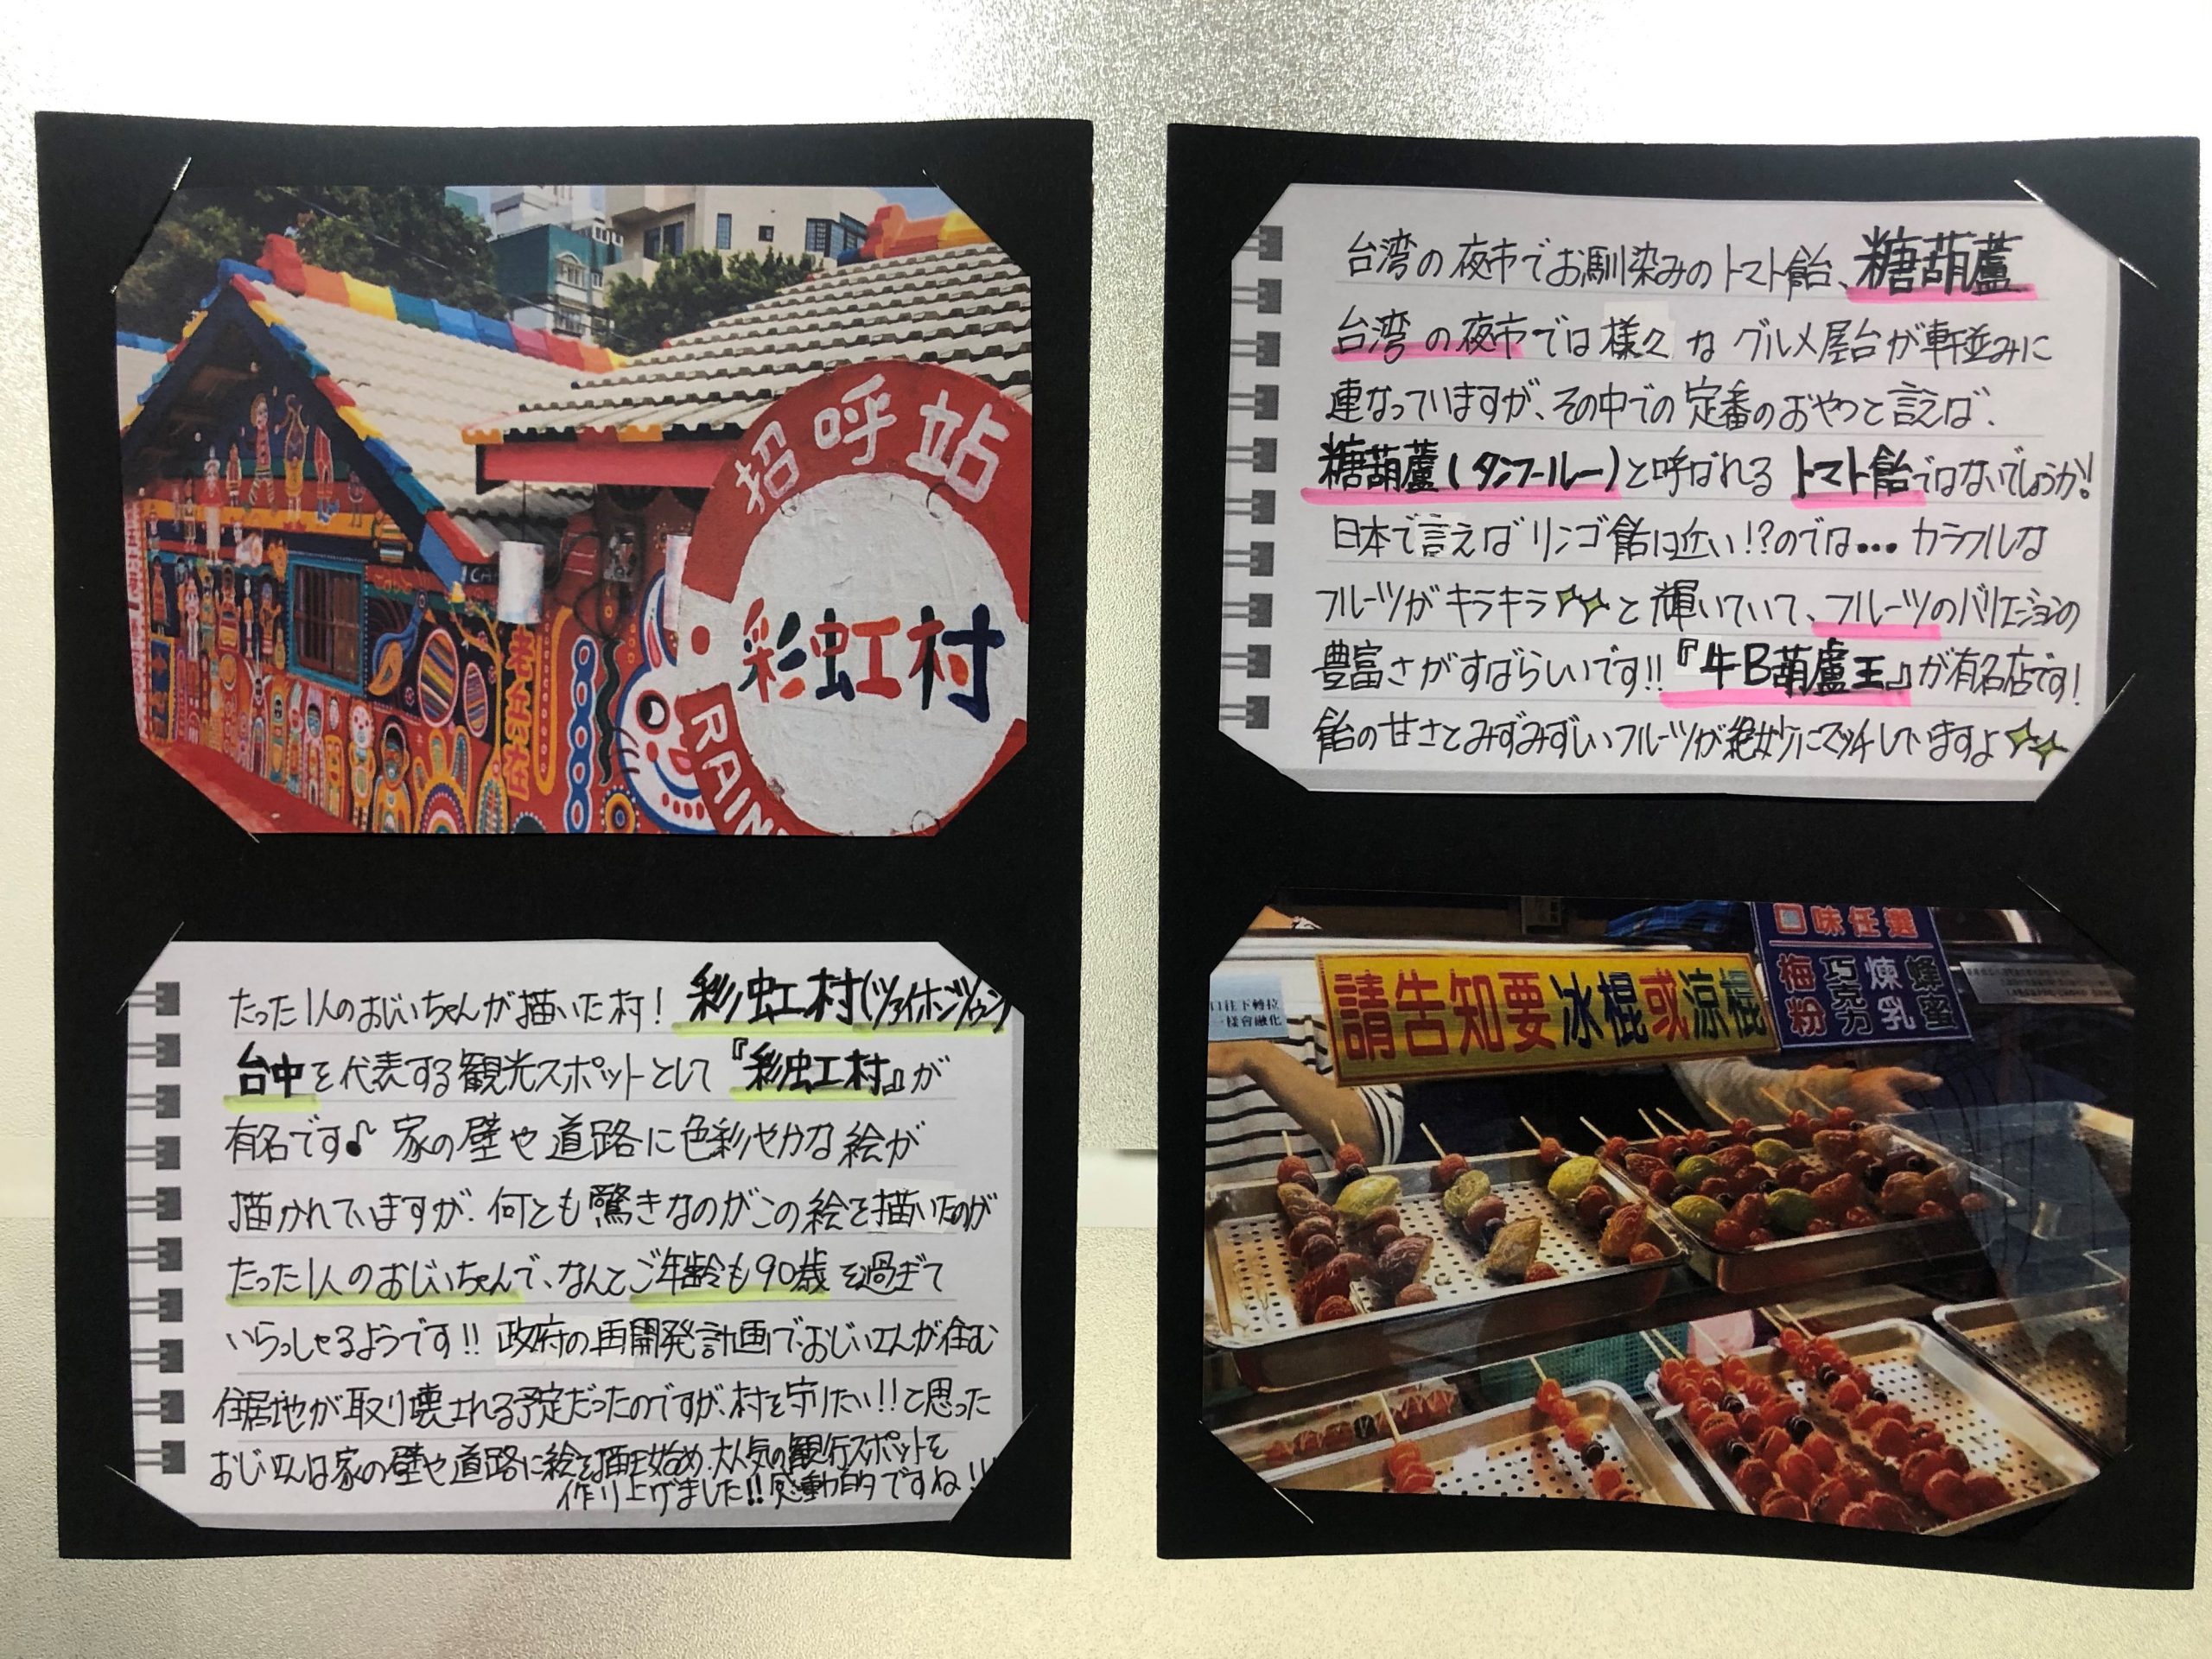 招呼站
彩虹村
RAIN
たった1人のおじいちゃんが描いた村! 彩虹村(ツァイホンツゥン)
台中を代表する観光スポットとして『彩虹村』が
有名です♪ 家の壁や道路に色彩やかな絵が
描かれていますが、何とも驚きなのがこの絵を描いたのが
たった1人のおじいちゃんで、なんとご年齢も90歳を過ぎて
いらっしゃるようです!! 政府の再開発計画でおじいさんが住む
住居地が取り壊される予定だったのですが、村を守りたい!!と思った
おじいさんは家の壁や道路に絵を描き始め、大人気の観行スポットを
作り上げました!! 感動的ですね!!
台湾の夜市でお馴染みのトマト飴、糖葫蘆
台湾の夜市では様々な グルメ屋台が軒並みに
連なっていますが、その中での定番のおやつと言えば、
糖葫蘆(タンフールー)と呼ばれる トマト飴ではないでしょうか!
日本で言えばリンゴ飴は近い!?のでは... カラフルな
フルーツがキラキラと輝いていて、フルーツのバリエーションの
豊富さがすばらしいです!!『牛B葫盧王』が有名店です!
飴の甘さとみずみずしいフルーツが絶妙にマッチしていますよ
口味任選
梅粉 巧克力 煉乳 蜂蜜
請告知要冰棍或涼棍
口往下轉拉
一樣會融化